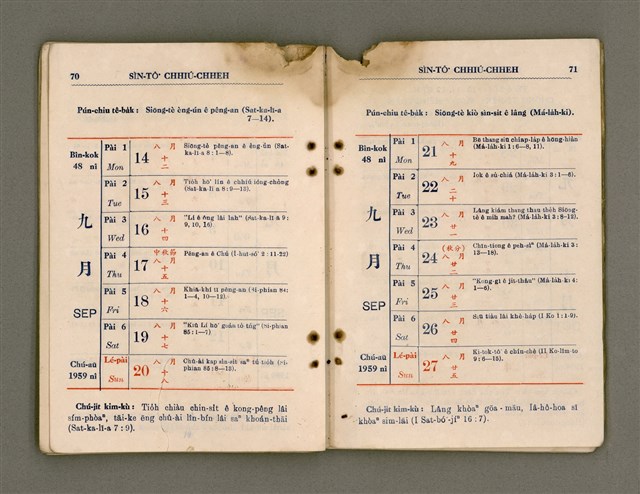 70 SÌN-TÔ͘ CHHIÚ-CHHEH
Pún-chiu tê-bàk: Siōng-tè èng-ún ê pêng-an (Sat-ka-lī-a
7—14).
Bîn-kok
48 nî
九
月
SEP
Chú-āu
1959 nî
Pài 1
Mon
14
八 月
十
二
Siōng-tè pêng-an ê èng-ún (Sat-
ka-lī-a 8:1—8).
Pài 2
Tue
15
八 月
十
三
Tiòh hō͘ lín ê chhiú ióng-chòng
(Sat-ka-lī-a 8:9—13).
Pài 3
Wed
16
八 月
十
四
"Lí ê ông lâi lah" (Sat-ka-lī-a 9:
9, 10, 16).
Pài 4
Thu
17
中秋節
八 月
十
五
Pêng-an ê Chú (Í-hut-só͘ 2:11-22)
Pài 5
Fri
18
八 月
十
六
(Si-phian 84:
1—4, 10—12).
Pài 6
Sat
19
八 月
十
七
"Kiû Lí hō͘ goán tò-tńg" (Si-phian
85:1—7).
Lé-pài
Sun
20
八 月
十
八
Chû-ài kap sìn-sit saⁿ tú-tiòh (Si-
phian 85:8—13).
Chú-jit kim-kù: Tiòh chiàu chin-sit ê kong-pêng lâi
sím-phòaⁿ, tāi-ke ēng chû-ài lîn-bín lâi saⁿ khoán-thāi
(Sat-ka-lī-a 7:9).
SÌN-TÔ͘ CHHIÚ-CHHEH 71
Pún-chiu tê-bàk: Siōng-tè kiò sìn-sit ê lâng (Má-làh-ki).
Bîn-kok
48 nî
九
月
SEP
Chú-āu
1959 nî
Pài 1
Mon
21
八 月
十
九
Bē thang siū chiap-làp ê hōng-hiàn
(Má-làh-ki 1:6—8, 11).
Pài 2
Tue
22
八 月
二
十
Iok ê sù-chiá (Má-làh-ki 3:1—6).
Pài 3
Wed
23
八 月
廿
一
Lâng kiám thang thau thèh Siōng-
tè ê mih mah? (Má-làh-ki 3:8—12).
Pài 4
Thu
24
(秋分)
八 月
廿
二
(Má-làh-ki 3:
13—18).
Pài 5
Fri
25
八 月
廿
三
"Kong-gī ê jit-thâu" (Má-làh-ki 4:
1—6).
Pài 6
Sat
26
八 月
廿
四
Siū tiàu lâi khè-háp (I Ko 1:1-9).
Lé-pài
Sun
27
八 月
廿
五
Ki-tok-tô͘ ê chīn-chè (II Ko-lîm-to
9:6—15).
Chú-jit kim-kù: Lâng khòaⁿ gōa-māu, Iâ-hô-hoa sī
khòaⁿ sim-lāi (I Sat-bó͘-jíⁿ 16:7).